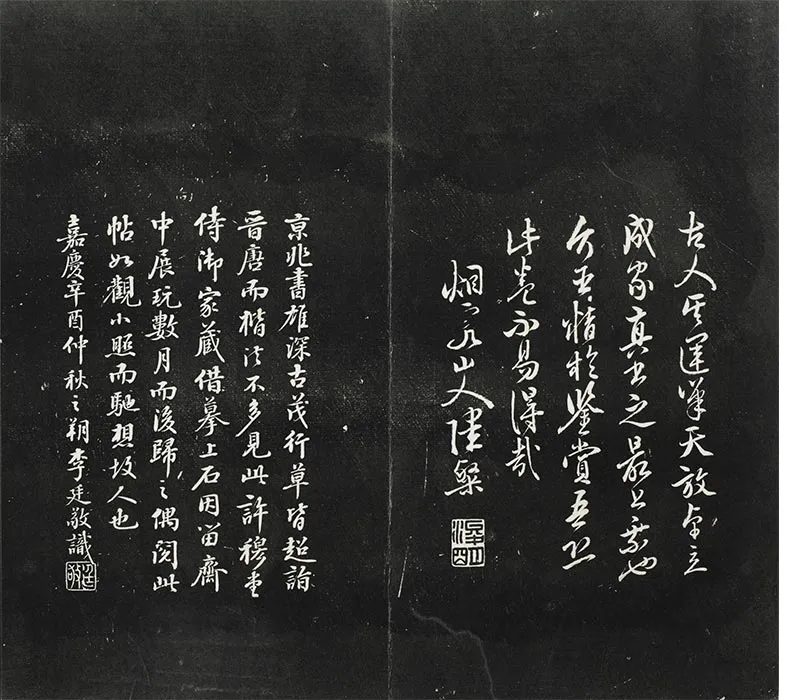 古人其運筆天放卓立
成家真書之最上乘也
精於鑒賞吾
此卷不易得哉
烟山人陸粲
京兆書雄深古茂行草皆超詣
晉唐而楷法不多見此許穆堂
侍御家藏借摹上石因留齋
中展玩數月而後歸之偶閱此
帖如觀小照而馳想故人也
嘉慶辛酉仲秋之朔李廷敬識
廷敬